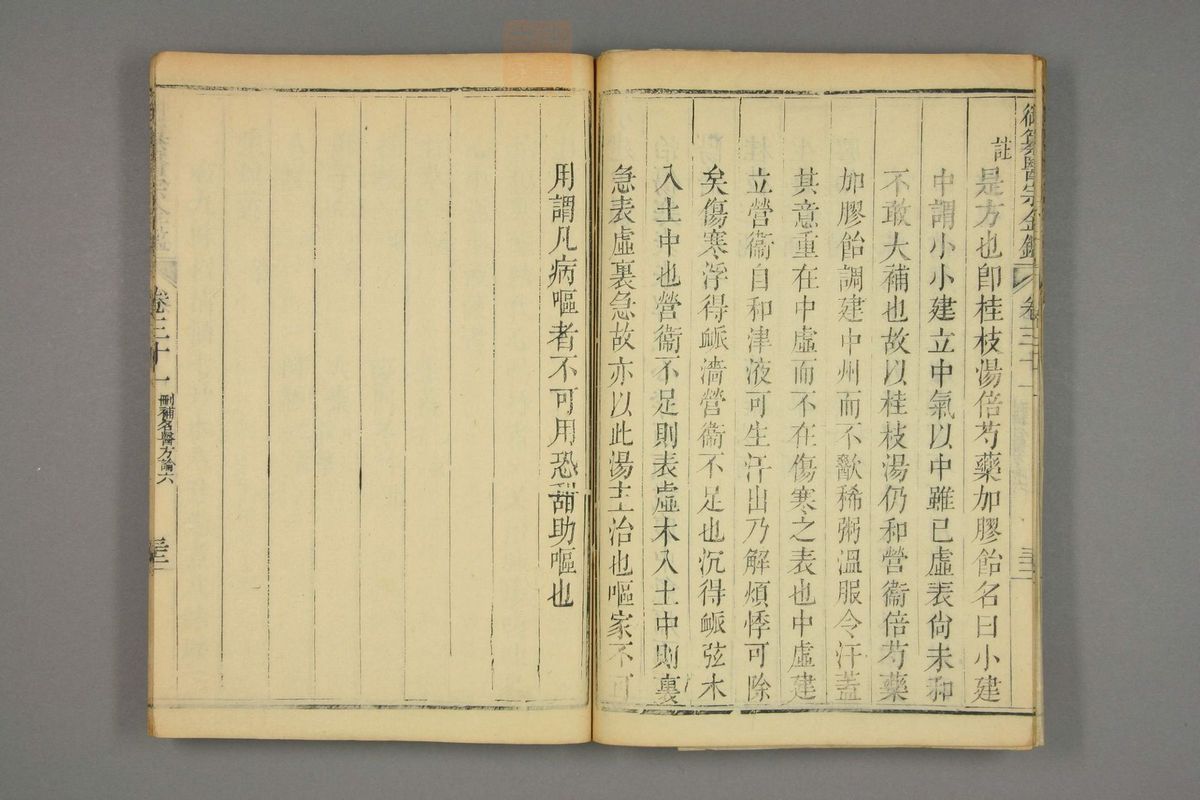 御纂醫宗金鑑 卷三十一
註
是方也卽桂枝湯倍芍藥加膠飴名曰小建
中謂小小建立中氣以中雖已虛表尙未和
不敢大補也故以桂枝湯仍和營衞倍芍藥
加膠飴調建中州而不歠稀粥溫服令汗蓋
其意重在中虛而不在傷寒之表也中虛建
立營衞自和津液可生汗出乃解煩悸可除
矣傷寒浮得衇濇營衞不足也沉得衇弦木
入土中也營衞不足則表虛木入土中則裏
急表虛裏急故亦以此湯主治也嘔家不可
用謂凡病嘔者不可用恐甜助嘔也
卷三十一 刪補名醫方論六